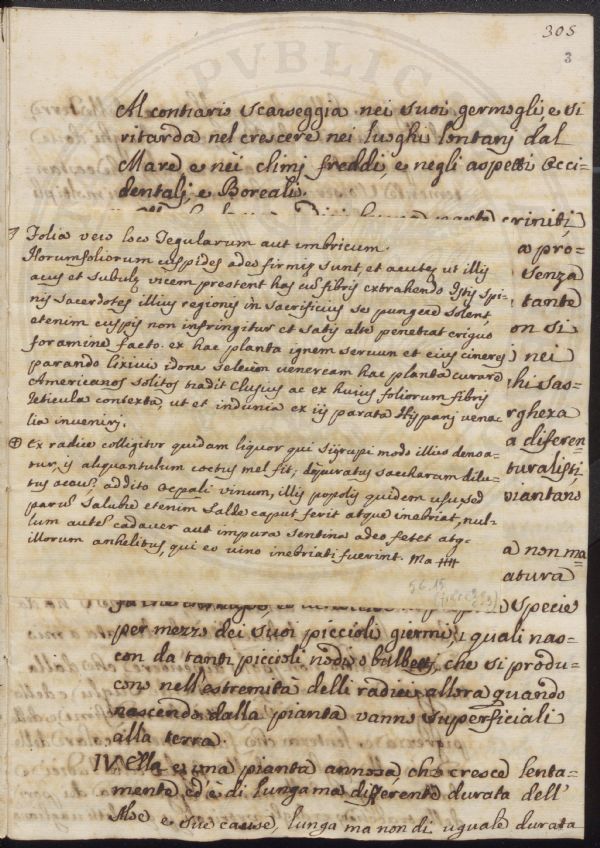 305
3
Al contrario scarseggia nei suoi germogli, e si
ritarda nel crescere nei luoghi lontanj dal
Mare, e nei climj freddi, e negli aspetti Occi=
dentalj, e Boreali.
criniti,
a pro=
senza
tante
on si
nei
hi sas=
rghezza
a diferen=
turalisti
viantano
a non ma=
atura
Folia vero loco Tegularum aut imbricum.
Horum foliorum cuspides adeo firmis sunt, et acutes, ut illis
acus et subulę vicem prestent has cu fibris extrahendo Istis spi=
nis sacerdotes illius regionis in sacrificiis se pungere solent,
etenim cuspis non infringitur et satis alte penetrat exiguo
foramine facto. ex hac planta ignem servun et eius cineres
parando lixivii idone veneream hac planta curare
Americanos solitos tradit Clusius ac ex huius foliorum fibris
reticula contexta, ut et indunia ex iis parata Hispanj vena=
lia invenirj.
ex radice colligitur quidam liquor qui sijrupi modo illius densa=
tur, is aliquantulum coctus mel fit; saccharum dilu=
tus acou, addito vinum, illis popolis quidem usu, sed
paru salubre etenim caput ferit atque inebriat, nul=
lum aute cadaver aut impura sentina adeo fetet atq.
illorum anhelitus, qui eo vino inebriati fuerint. Ma
specie
per mezzo dei suoi piccioli giermi, i quali nas=
con da tanti piccioli nodi, o bulbettj, che si produ=
cono nell'estremità delli radici, allora quando
nascendo dalla pianta vanno superficiali
alla terra.
IV. Ella è una pianta annosa, che cresce lenta=
mente ed è di lunga ma differente durata dell'
Aloe e sue cause, lunga ma non di uguale durata